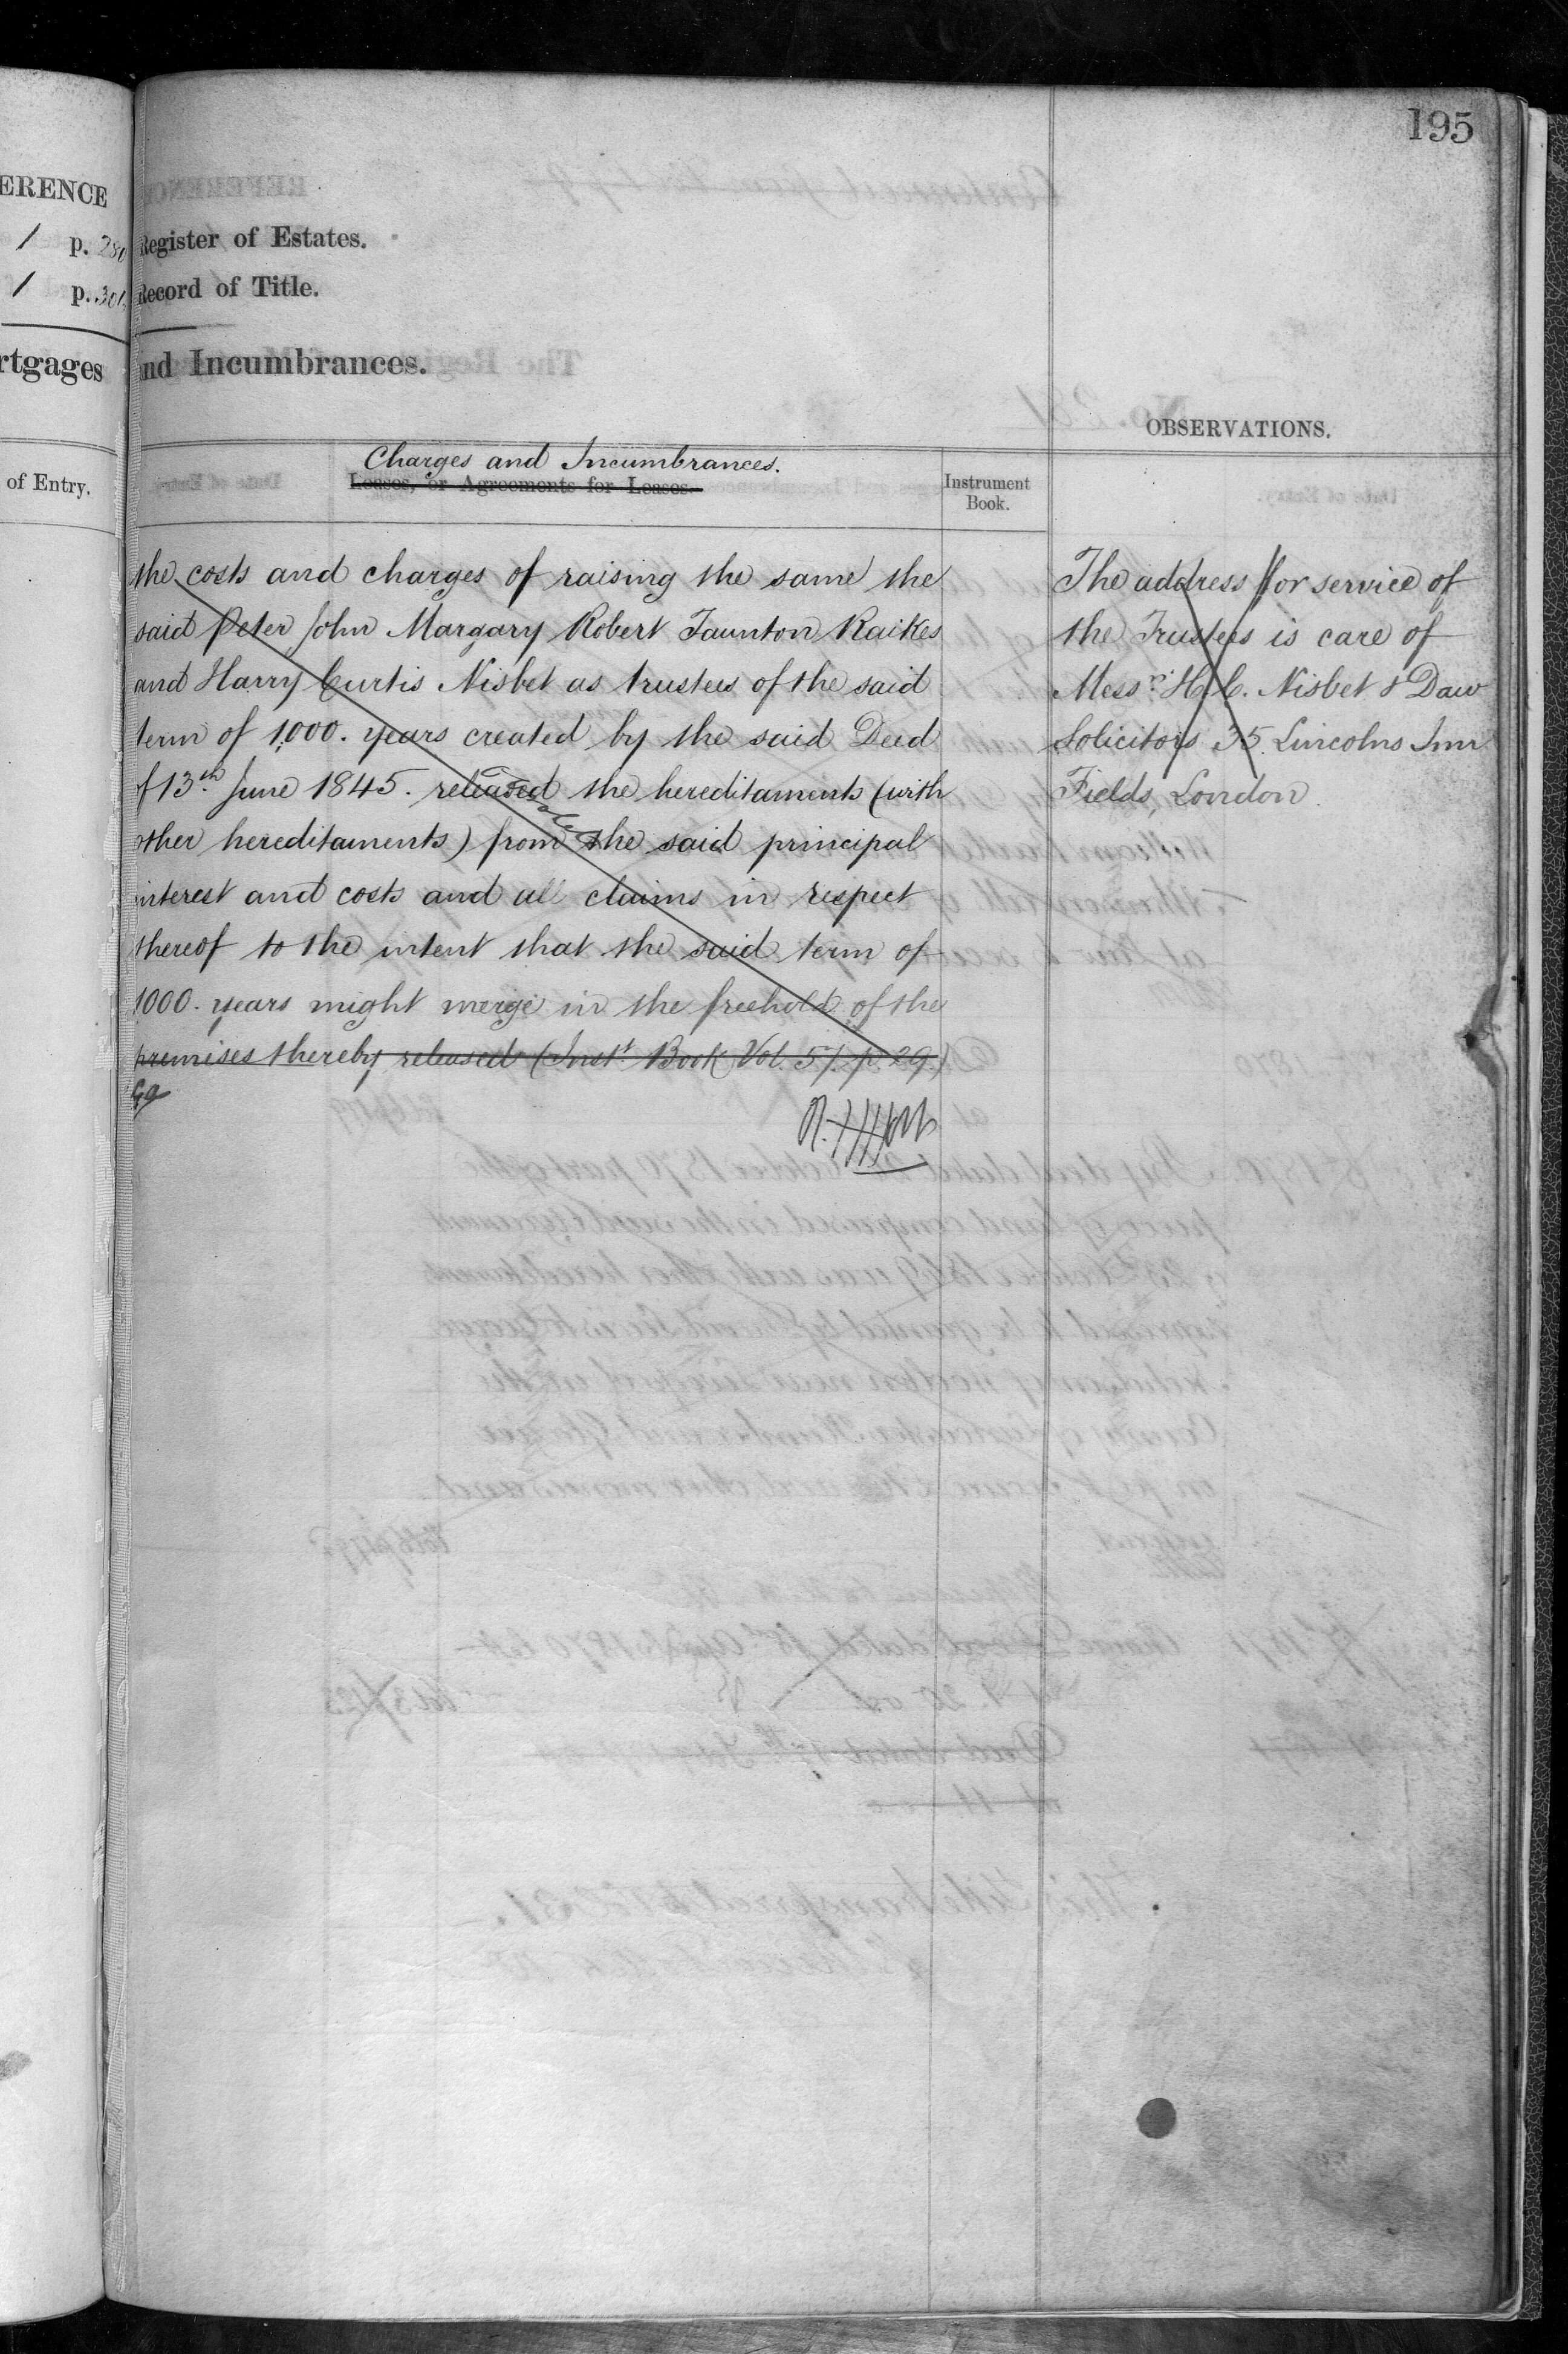 195
ERENCE
1 p. 280 Register of Estates.
1 p. 301. Record of Title.
rtgages and Incumbrances.
OBSERVATIONS.
of Entry.
Charges and Incumbrances.
Leases, or Agreements for Leases
Instrument
Book.
the costs and charges of raising the same the
said Peter John Margary Robert Taunton Raikes
and Harry Curtis Nisbet as trustees of the said
term of 1,000. years created by the said Deed
of 13th June 1845. released the hereditaments (with
other hereditaments) from the said principal
interest and costs and all claims in respect
thereof to the intent that the said term of
1000. years might merge in the freehold of the
premises thereby released (Inst Book Vol. 57. p. 29.)
The address for service of
the Trustees is care of
Messrs H. C. Nisbet & Daw
Solicitors 35. Lincolns Inn
Fields, London.